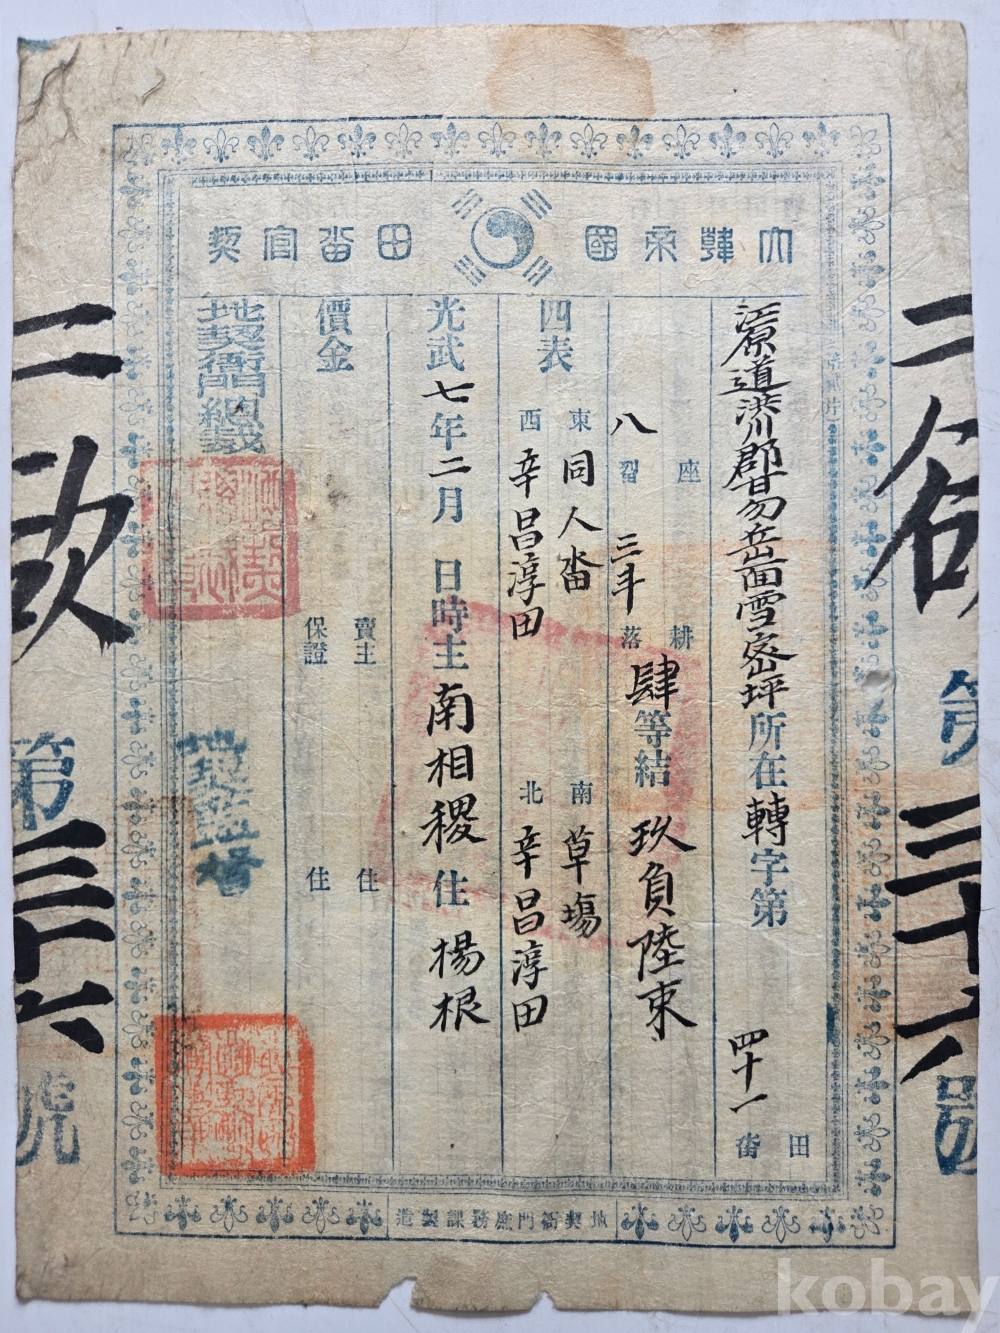 大韓帝國 田畓官契
江原道洪川郡
面雪
坪所在轉字第四十一 田畓
八𪣻 座
三斗落 耕
肆等結 玖負陸束
四表
東 同人畓 南 草場
西 辛昌淳田 北 辛昌淳田
光武七年二月 日時主 南相稷 住 楊根
價金
賣主 住
保證 住
地契衙門總裁
地契監督
地契衙門庶務課製造
二
第三十六號
二
第三十六號
kobay